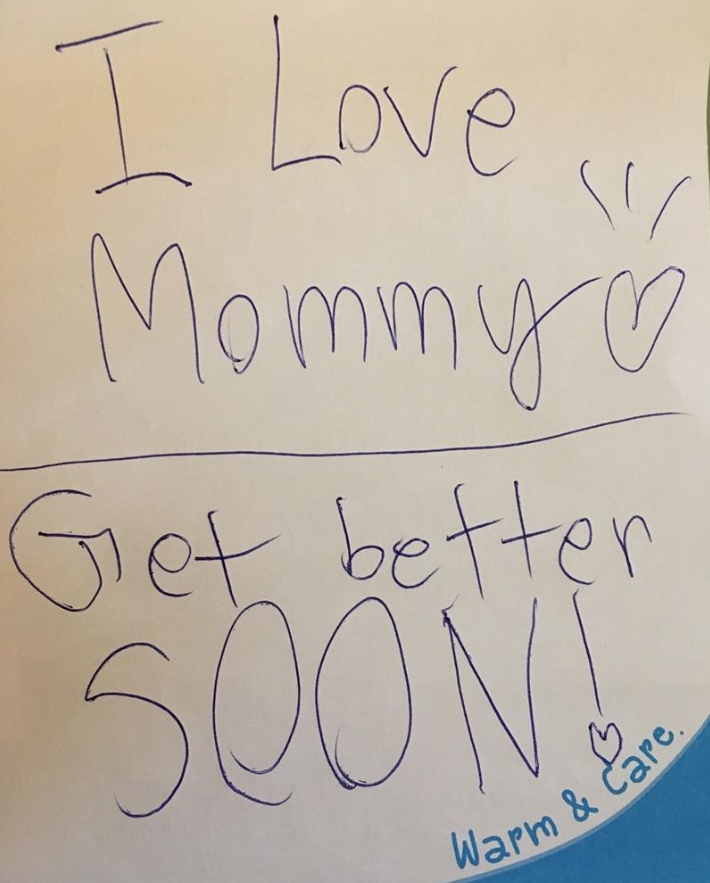 I Love
Mommy
Get better
SOON!
Warm & Care.